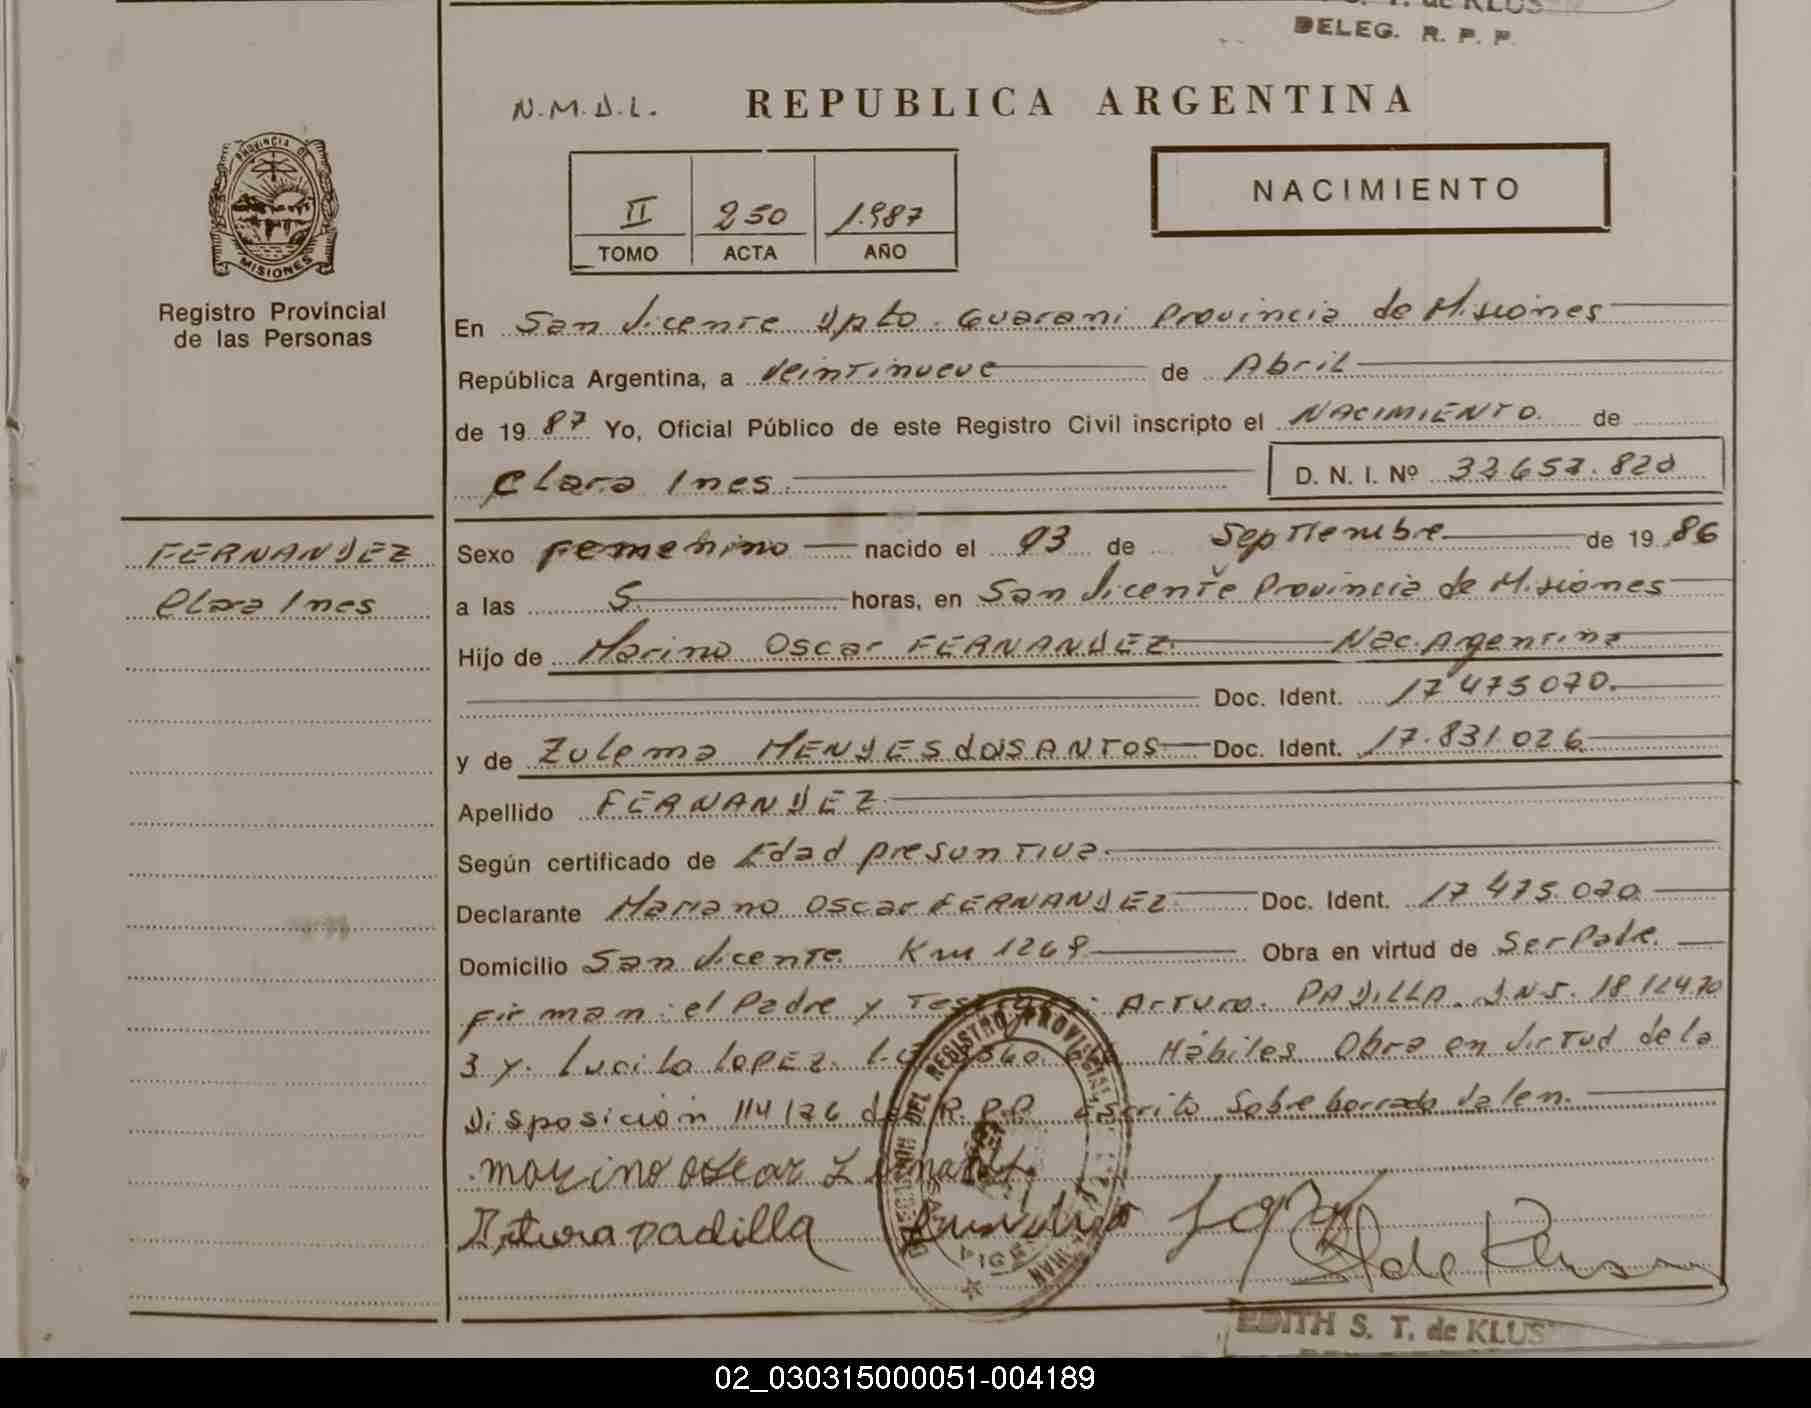 S. T. de KLUS
DELEG. R. P. P.
N.M.D.L. REPUBLICA ARGENTINA
PROVINCIA DE
MISIONES
Registro Provincial
de las Personas
II 250 1.987
TOMO ACTA AÑO
NACIMIENTO
En San Vicente Dpto. Guarani Provincia de Misiones
República Argentina, a Veintinueve de Abril
de 1987 Yo, Oficial Público de este Registro Civil inscripto el NACIMIENTO. de
Clara Ines. D. N. I. Nº
FERNANDEZ
Clara Ines
Sexo Femenino nacido el 03 de Septiembre de 1986
a las 5 horas, en San Vicente Provincia de Misiones
Hijo de Marino Oscar FERNANDEZ. Nac. Argentina
Doc. Ident. 17 475 070.
y de Zulema MENDES dos SANTOS Doc. Ident. 17.831.026
Apellido FERNANDEZ
Según certificado de Edad presuntiva.
Declarante Mariano Oscar FERNANDEZ Doc. Ident. 17 475.070
Domicilio San Vicente Km 1269 Obra en virtud de Ser Padre.
Firman: el Padre y Testigos: Arturo PADILLA. D.N.I.
3 y. LOPEZ. Hábiles Obra en Virtud de la
Disposición 114/76 del R.P.P. escrito sobre borrado Valen.
marino oscar
Arturo Padilla
DEL REGISTRO PROVINCIAL
de Klus
EDITH S. T. de KLUS
02_030315000051-004189